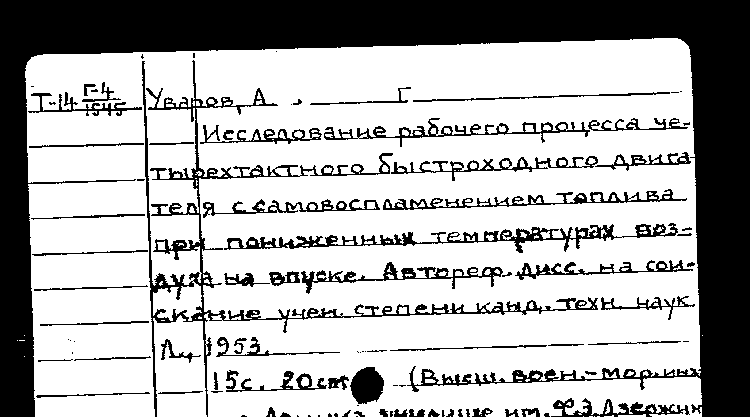 Т-14 Г-4/1545 Уваров, А. Г
Исследование рабочего процесса че-
тырехтактного быстроходного двига
теля с самовоспламенением топлива
при пониженных температурах воз-
духа на впуске. Автореф. дисс. на сои-
скание учен. степени канд. техн. наук
Л., 1953.
15с. 20см (Высш. воен.-мор. инж
училище им. Ф.Э. Дзержин